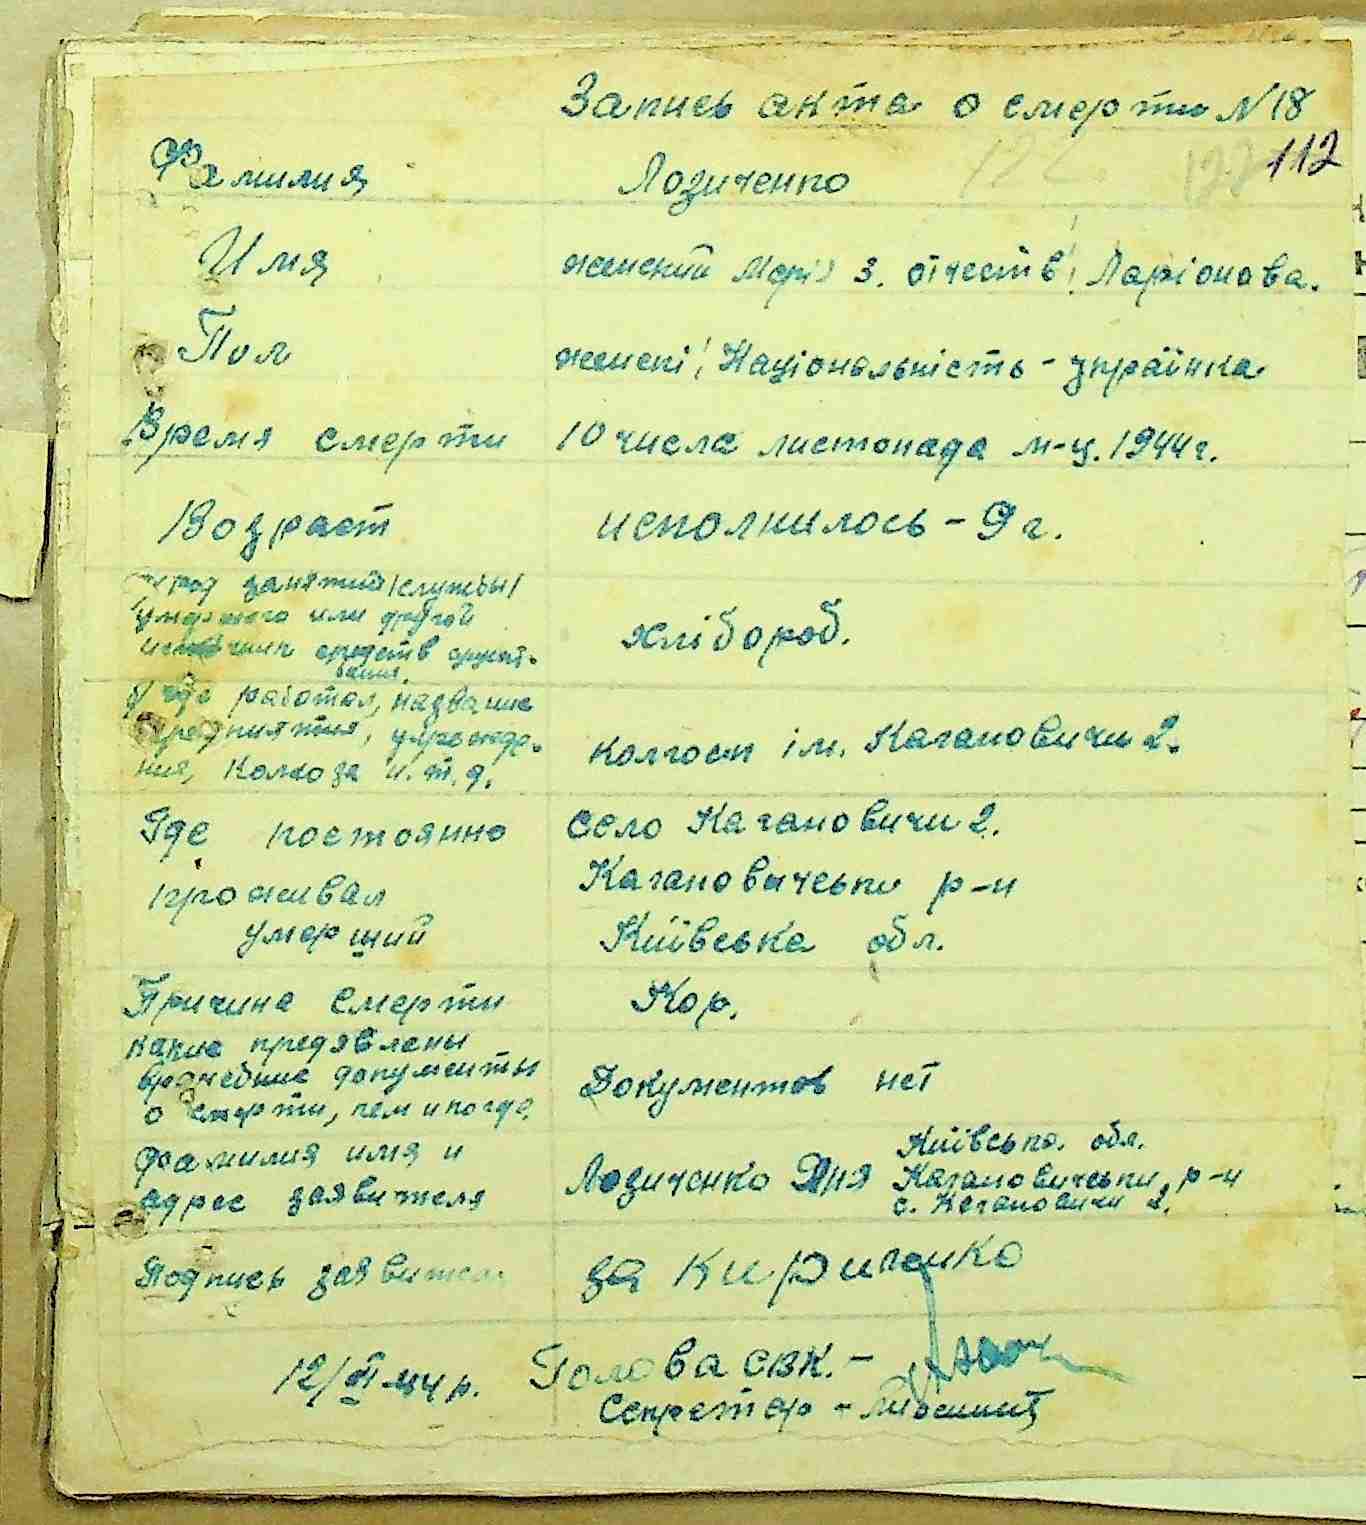 Запись акта о смерти N 18
112
Фамилия Лозиченко
Имя женский Марія з. отчеств! Ларіонова.
Пол женскі! Національність - українка
Время смерти 10 числа листопада м-ц. 1944 г.
Возраст исполнилось - 9 г.
род занятий /службы/
умершего или другой
источник средств сущест-
вания хлібороб.
где работал, название
предприятия, учрежде-
ния, колхоза и.т.д. колгосп ім. Кагановичи 2.
Где постоянно село Кагановичи 2.
проживал Кагановичськи р-н
умерший Київська обл.
Причина смерти Кор.
какие предявлены
врачебние документы
о смерти, кем и когда Документов нет
фамилия имя и Київська. обл.
адрес заявителя Лозиченко Яня Кагановичськи р-н
с. Кагановичи 2.
Подпись заявителя за Кириченко
12/XI 44 р. Голова свк. -
Секретар -